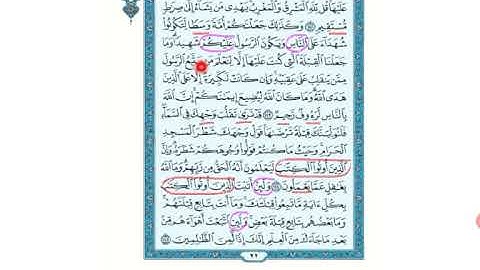 عَلَيْهَا قُل لِّلَّهِ ٱلْمَشْرِقُ وَٱلْمَغْرِبُ يَهْدِى مَن يَشَآءُ إِلَىٰ صِرَٰطٍ
مُّسْتَقِيمٍ ١٤٢ وَكَذَٰلِكَ جَعَلْنَٰكُمْ أُمَّةً وَسَطًا لِّتَكُونُوا۟
شُهَدَآءَ عَلَى ٱلنَّاسِ وَيَكُونَ ٱلرَّسُولُ عَلَيْكُمْ شَهِيدًا وَمَا
جَعَلْنَا ٱلْقِبْلَةَ ٱلَّتِى كُنتَ عَلَيْهَآ إِلَّا لِنَعْلَمَ مَن يَتَّبِعُ ٱلرَّسُولَ
مِمَّن يَنقَلِبُ عَلَىٰ عَقِبَيْهِ وَإِن كَانَتْ لَكَبِيرَةً إِلَّا عَلَى ٱلَّذِينَ
هَدَى ٱللَّهُ وَمَا كَانَ ٱللَّهُ لِيُضِيعَ إِيمَٰنَكُمْ إِنَّ ٱللَّهَ
بِٱلنَّاسِ لَرَءُوفٌ رَّحِيمٌ ١٤٣ قَدْ نَرَىٰ تَقَلُّبَ وَجْهِكَ فِى ٱلسَّمَآءِ
فَلَنُوَلِّيَنَّكَ قِبْلَةً تَرْضَىٰهَا فَوَلِّ وَجْهَكَ شَطْرَ ٱلْمَسْجِدِ
ٱلْحَرَامِ وَحَيْثُ مَا كُنتُمْ فَوَلُّوا۟ وُجُوهَكُمْ شَطْرَهُۥ وَإِنَّ
ٱلَّذِينَ أُوتُوا۟ ٱلْكِتَٰبَ لَيَعْلَمُونَ أَنَّهُ ٱلْحَقُّ مِن رَّبِّهِمْ وَمَا ٱللَّهُ
بِغَٰفِلٍ عَمَّا يَعْمَلُونَ ١٤٤ وَلَئِنْ أَتَيْتَ ٱلَّذِينَ أُوتُوا۟ ٱلْكِتَٰبَ
بِكُلِّ ءَايَةٍ مَّا تَبِعُوا۟ قِبْلَتَكَ وَمَآ أَنتَ بِتَابِعٍ قِبْلَتَهُمْ
وَمَا بَعْضُهُم بِتَابِعٍ قِبْلَةَ بَعْضٍ وَلَئِنِ ٱتَّبَعْتَ أَهْوَآءَهُم مِّنۢ
بَعْدِ مَا جَآءَكَ مِنَ ٱلْعِلْمِ إِنَّكَ إِذًا لَّمِنَ ٱلظَّٰلِمِينَ ١٤٥
٢٢